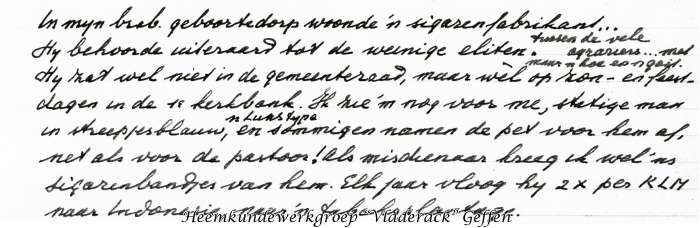 In mijn brab. geboortedorp woonde 'n sigarenfabrikant...
tussen de vele
Hij behoorde uiteraard tot de weinige eliten. agrariërs... met
maar 'n koe en 'n geit.
Hij zat wel niet in de gemeenteraad, maar wèl op zon- en feest-
dagen in de 1e kerkbank. Ik zie 'm nog voor me, statige man
'n Lukstype
in streepjesblauw, en sommigen namen de pet voor hem af,
net als voor de pastoor! Als misdienaar kreeg ik wel 'ns
sigarenbandjes van hem. Elk jaar vloog hij 2x per KLM
naar Indonesië naar 'n
Heemkundewerkgroep Vladerack Geffen.